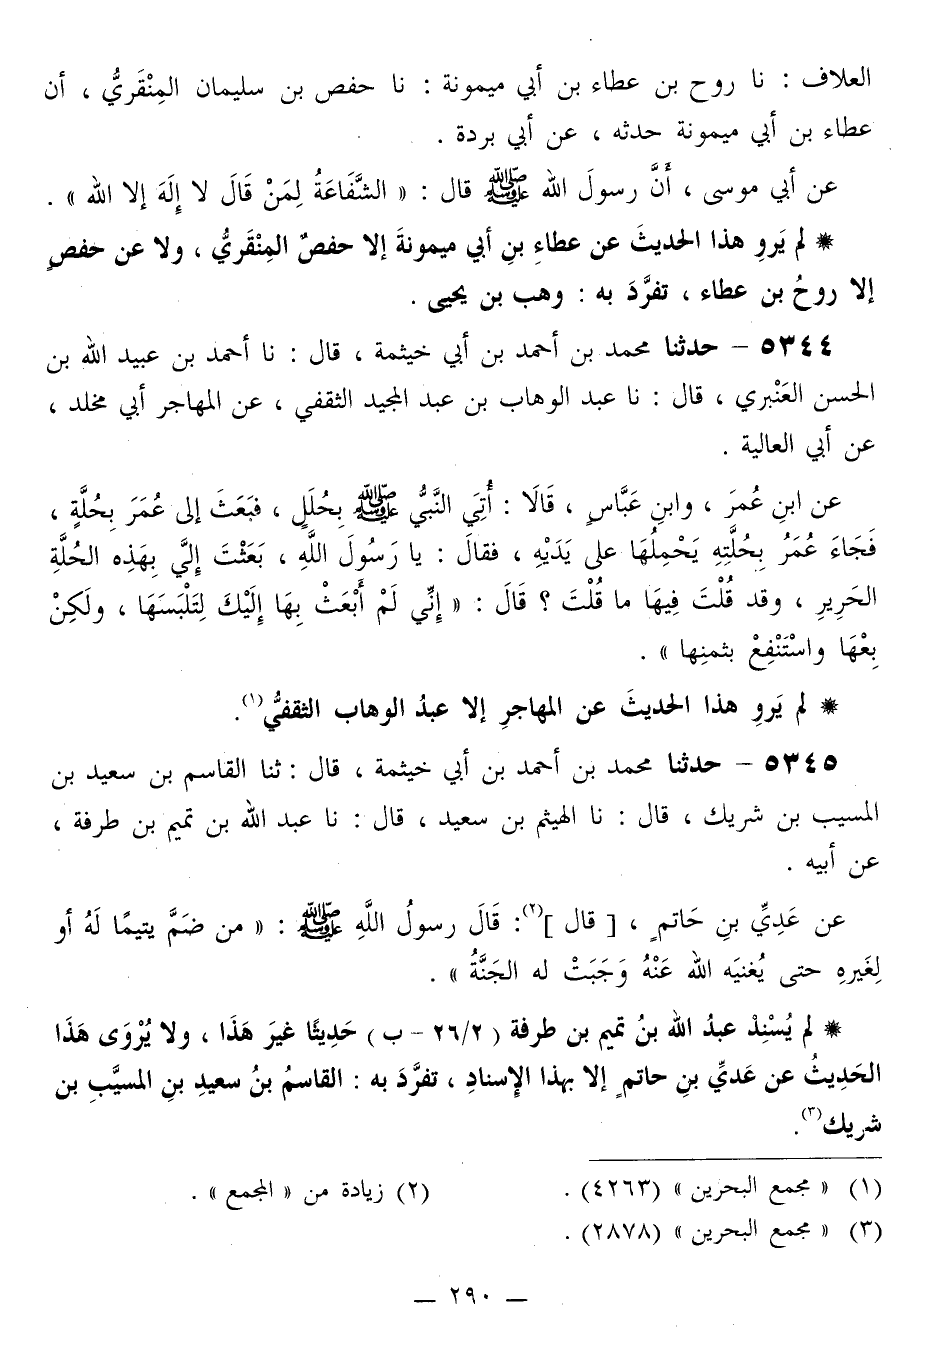 العلاف : نا روح بن عطاء بن أبي ميمونة : نا حفص بن سليمان المِنْقَريُّ ، أن
عطاء بن أبي ميمونة حدثه ، عن أبي بردة .
عن أبي موسى ، أَنَّ رسولَ الله ﷺ قال : « الشَّفَاعَةُ لِمَنْ قَالَ لا إِلَهَ إلا الله » .
* لم يَروِ هذا الحديثَ عن عطاءِ بنِ أبي ميمونةَ إلا حفصٌ المِنْقَريُّ ، ولا عن حفصٍ
إلا روحُ بن عطاء ، تفرَّدَ به : وهب بن يحيى .
٥٣٤٤ - حدثنا محمد بن أحمد بن أبي خيثمة ، قال : نا أحمد بن عبيد الله بن
الحسن العَنْبري ، قال : نا عبد الوهاب بن عبد المجيد الثقفي ، عن المهاجر أبي مخلد ،
عن أبي العالية .
عن ابنِ عُمرَ ، وابنِ عَبَّاسٍ ، قَالَا : أُتِيَ النَّبيُّ ﷺ بِحُلَلٍ ، فبَعَثَ إلى عُمَرَ بِحُلَّةٍ ،
فَجَاءَ عُمَرُ بِحُلَّتِهِ يَحْمِلُهَا على يَدَيْهِ ، فقالَ : يا رَسُولَ اللَّهِ ، بَعَثْتَ إِلَيَّ بِهَذِه الحُلَّةِ
الحَرِيرِ ، وقد قُلْتَ فِيهَا ما قُلْتَ ؟ قَالَ : « إِنِّي لَمْ أَبْعَثْ بِهَا إِلَيْكَ لِتَلْبَسَهَا ، ولَكِنْ
بِعْهَا واسْتَنْفِعْ بثمنِها » .
* لم يَروِ هذا الحديثَ عن المهاجرِ إلا عبدُ الوهاب الثقفيُّ(١).
٥٣٤٥ - حدثنا محمد بن أحمد بن أبي خيثمة ، قال : ثنا القاسم بن سعيد بن
المسيب بن شريك ، قال : نا الهيثم بن سعيد ، قال : نا عبد الله بن تميم بن طرفة ،
عن أبيه .
عن عَدِيِّ بنِ حَاتمٍ ، [ قال ](٢): قَالَ رسولُ اللَّهِ ﷺ : « من ضَمَّ يتيمًا لَهُ أو
لِغَيرِهِ حتى يُغنيَه الله عَنْهُ وَجَبَتْ له الجَنَّةُ » .
* لم يُسْنِدْ عبدُ الله بنُ تميم بن طرفة ( ٢٦/٢ - ب ) حَدِيثًا غيرَ هَذَا ، ولا يُرْوَى هَذَا
الحَدِيثُ عن عَديِّ بنِ حاتمٍ إلا بهذا الإِسنادِ ، تفرَّدَ به : القاسمُ بنُ سعيدِ بنِ المسيَّبِ بن
شريك(٣).
(١) « مجمع البحرين » (٤٢٦٣) . (٢) زيادة من « المجمع » .
(٣) « مجمع البحرين » (٢٨٧٨) .
— ٢٩٠ —